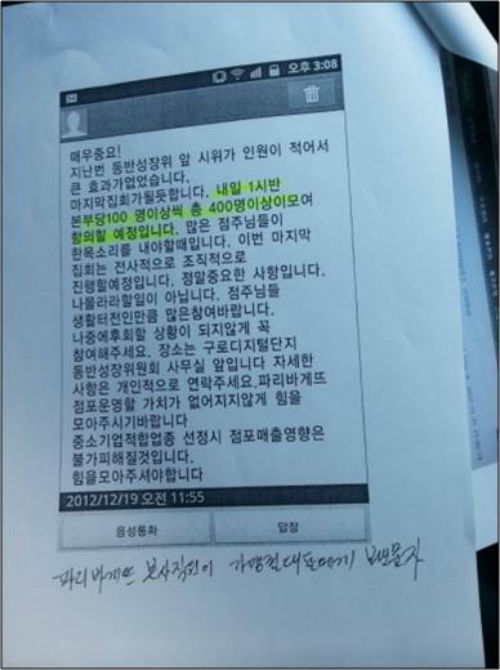 오후 3:08
매우중요!
지난번 동반성장위 앞 시위가 인원이 적어서
큰 효과가없었습니다.
마지막집회가될듯합니다. 내일 1시반
본부당100 명이상씩 총 400명이상이모여
항의할 예정입니다. 많은 점주님들이
한목소리를 내야할때입니다. 이번 마지막
집회는 전사적으로 조직적으로
진행할예정입니다. 정말중요한 사항입니다.
나몰라라할일이 아닙니다. 점주님들
생활터전인만큼 많은참여바랍니다.
나중에후회할 상황이 되지않게 꼭
참여해주세요. 장소는 구로디지털단지
동반성장위원회 사무실 앞입니다 자세한
사항은 개인적으로 연락주세요.파리바게뜨
점포운영할 가치가 없어지지않게 힘을
모아주시기바랍니다
중소기업적합업종 선정시 점포매출영향은
불가피해질것입니다.
힘을모아주셔야합니다
2012/12/19 오전 11:55
음성통화 답장
파리바게뜨 본사직원이 가맹점대표에게 보낸문자